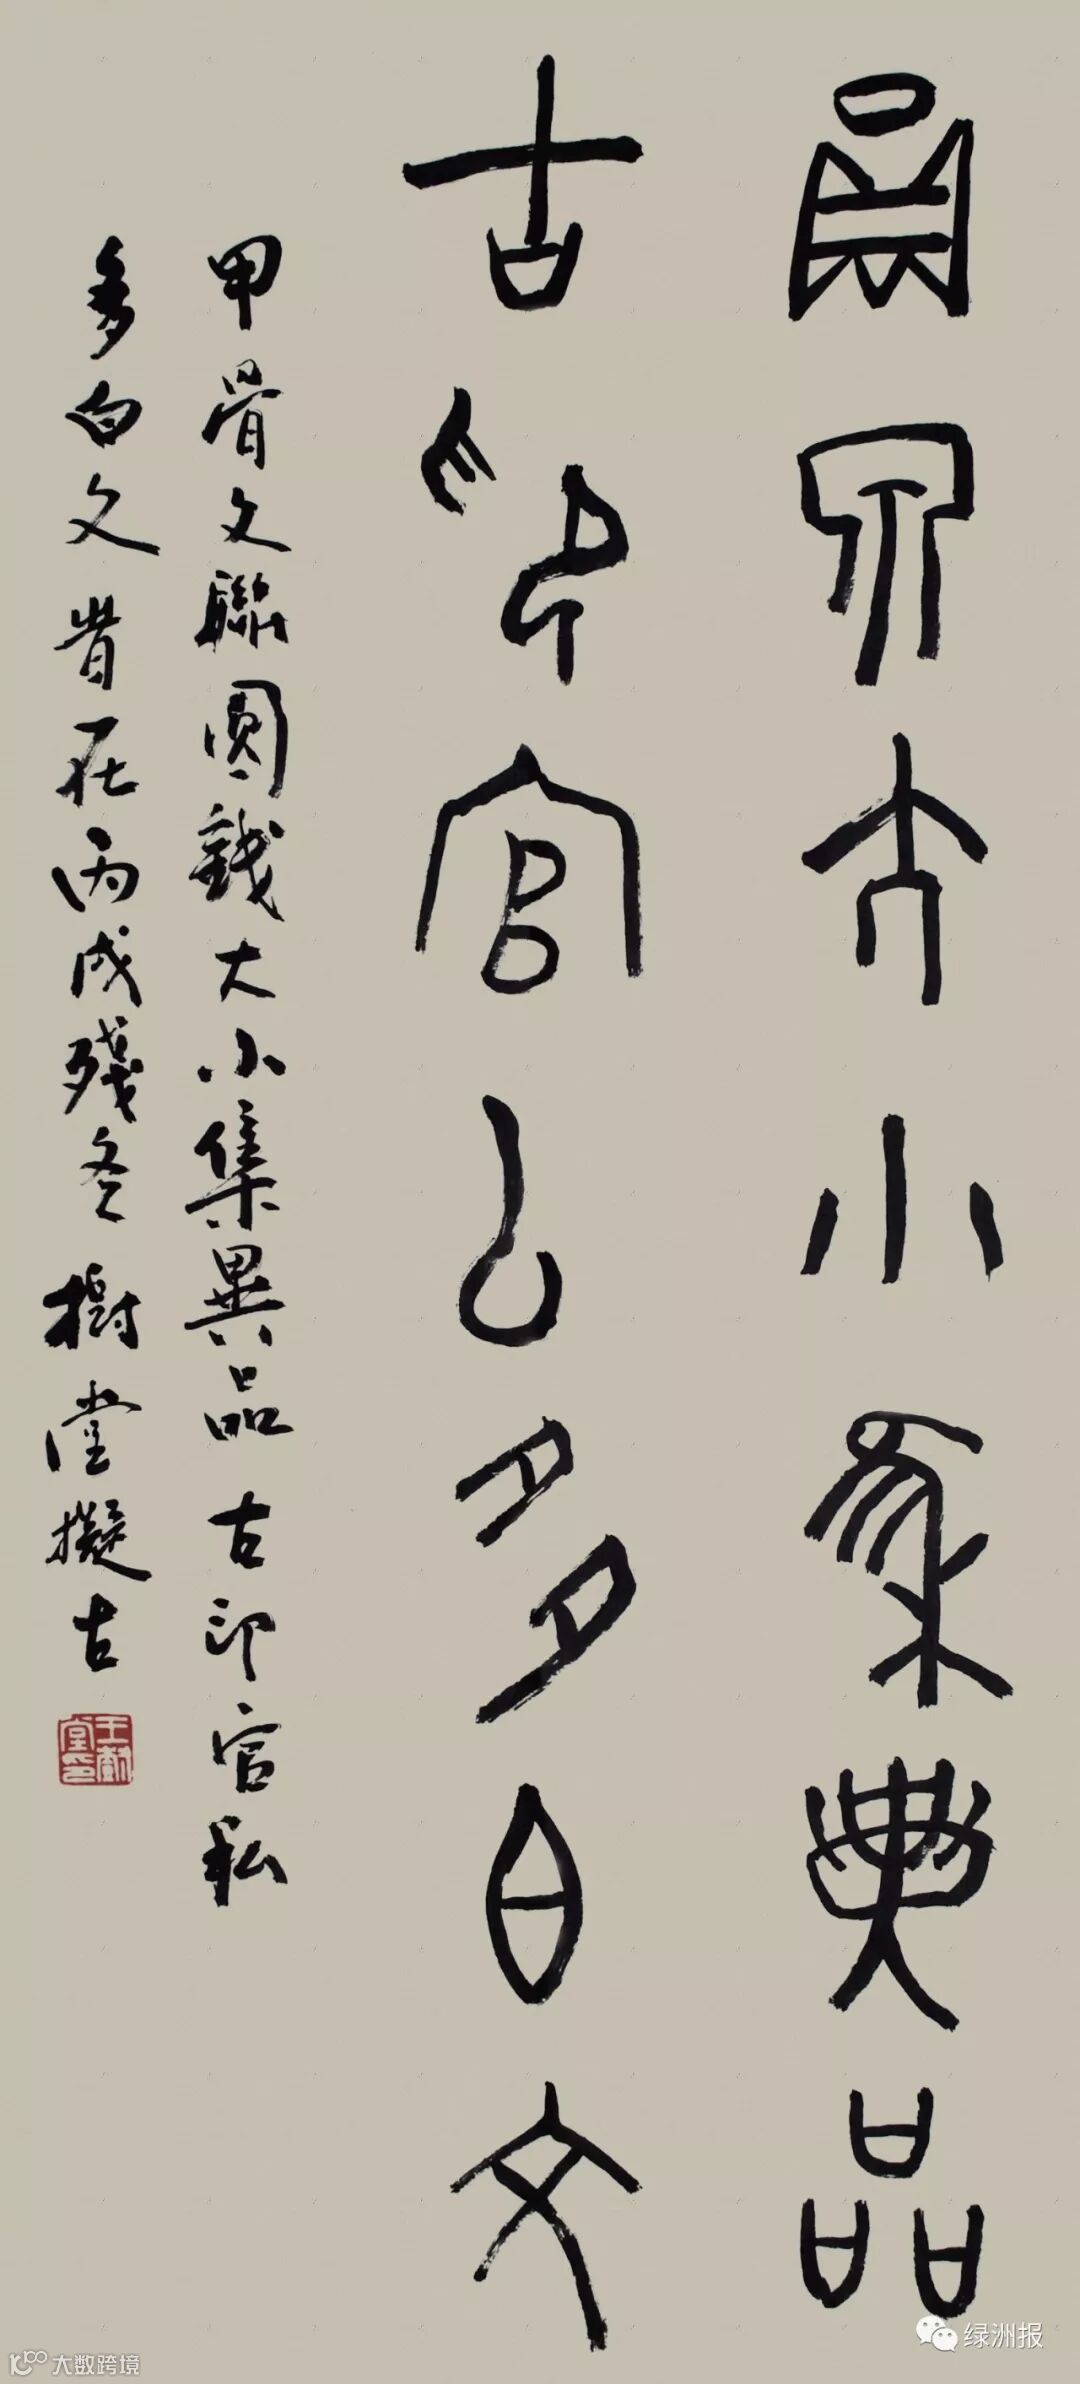 員泉大小集異品
古印官厶多白文
甲骨文聯圓錢大小集異品古印官私
多白文 昔在丙戌殘冬 樹堂擬古
王樹堂印
绿洲报
大数跨境